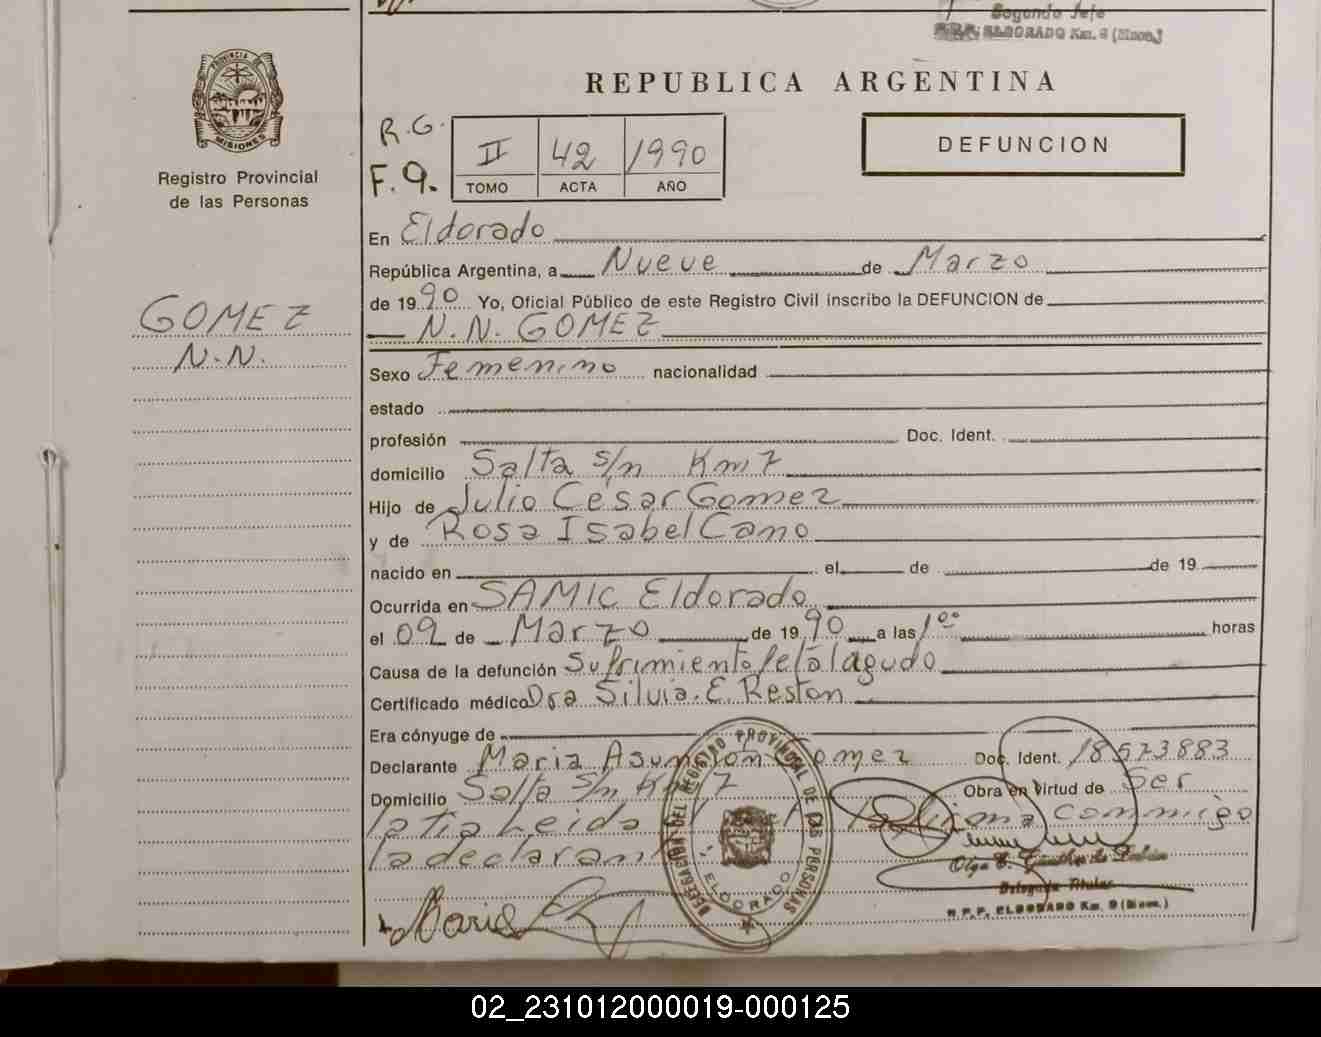 Segundo Jefe
ELDORADO Km. 9 (Mnes.)
PROVINCIA DE
MISIONES
Registro Provincial
de las Personas
REPUBLICA ARGENTINA
R.G.
F.9.
II 42 1990
TOMO ACTA AÑO
DEFUNCION
GOMEZ
N.N.
En Eldorado
República Argentina, a Nueve de Marzo
de 1990 Yo, Oficial Público de este Registro Civil inscribo la DEFUNCION de
N.N. GOMEZ
Sexo Femenino nacionalidad
estado
profesión Doc. Ident.
domicilio Salta s/n Km 7
Hijo de Julio César Gomez
y de Rosa Isabel Cano
nacido en el de de 19
Ocurrida en SAMIC Eldorado
el 09 de Marzo de 1990 a las 1°° horas
Causa de la defunción Sufrimiento fetal agudo
Certificado médico Dra Silvia. E. Reston
Era cónyuge de
Declarante Maria Asunsión Gomez Doc. Ident. 18573883
Domicilio Salta s/n Km 7 Obra en virtud de Ser
la tia Leida la firma conmigo
la declarante
DELEGACION DEL REGISTRO PROVINCIAL DE LAS PERSONAS
ELDORADO
Delegada Titular
R.P.P. ELDORADO Km. 9 (Mnes.)
Maria
02_231012000019-000125